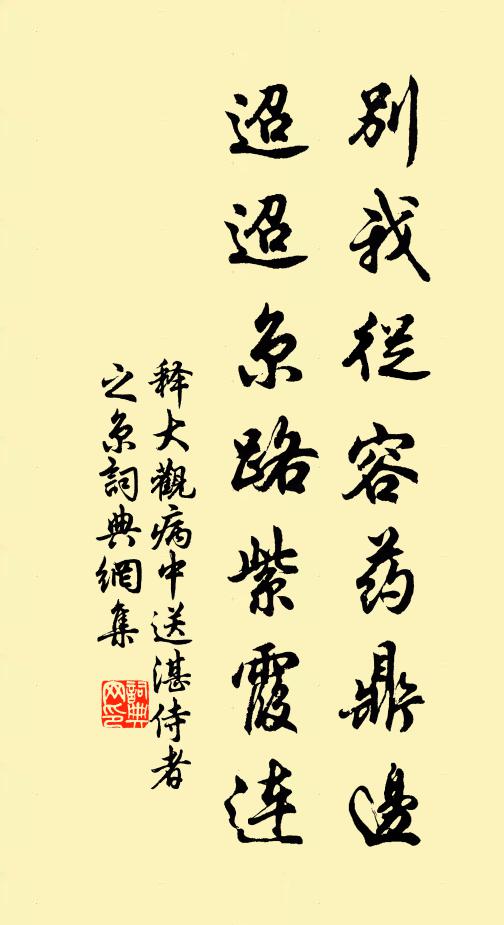 別我從容药鼎邊
迢迢京路紫霞連
释大觀病中送湛侍者
之京詞典網集
詞典
网印